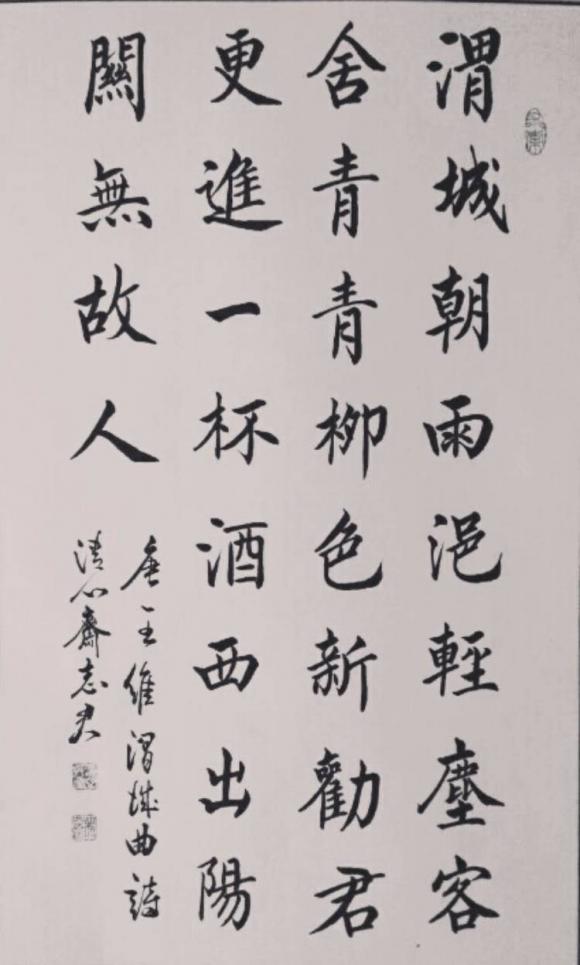 渭城朝雨浥輕塵客
舍青青柳色新勸君
更進一杯酒西出陽
關無故人
唐王維渭城曲詩
清心齋志忠